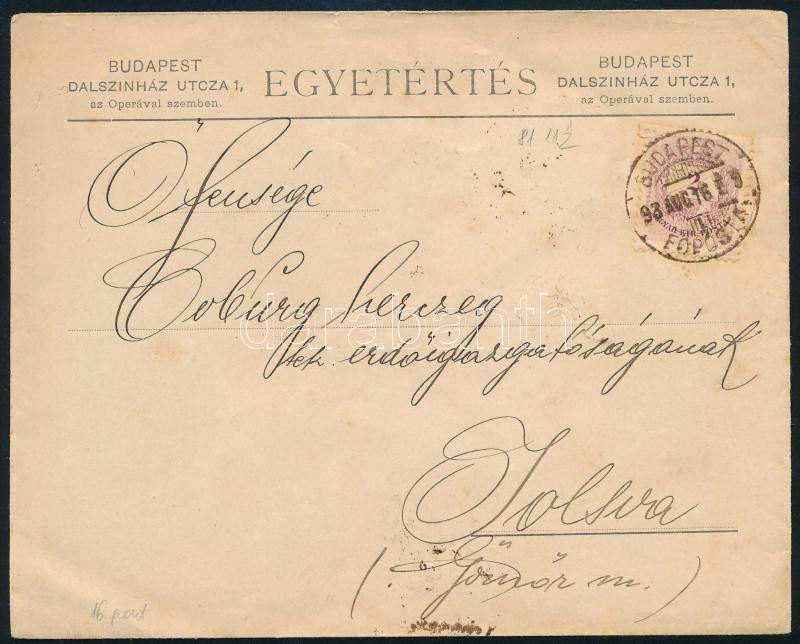 BUDAPEST
DALSZINHÁZ UTCZA 1,
az Operával szemben.
EGYETÉRTÉS
BUDAPEST
DALSZINHÁZ UTCZA 1,
az Operával szemben.
81 11½
BUDAPEST
93 AUG. 16
FŐPOSTA
Őfensége
Coburg herczeg
tek. erdőigazgatóságának
Jolsva
(Gömör m.)
darabanth
16 pont